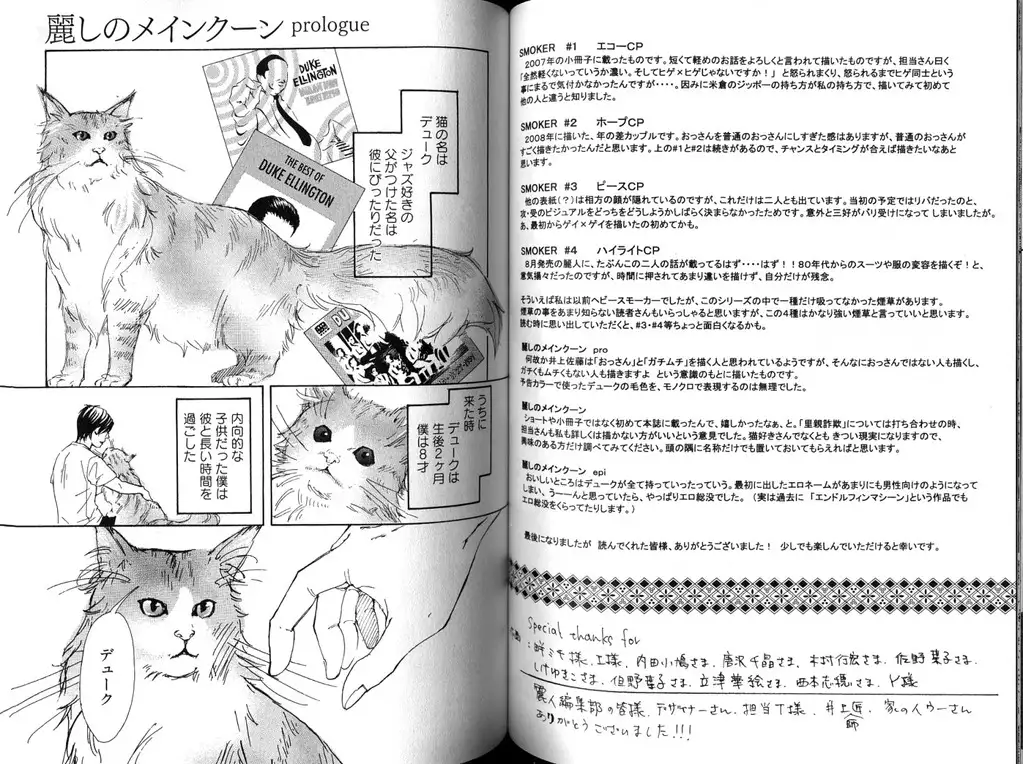 麗しのメインクーン prologue
DUKE
ELLINGTON
THE BEST OF
DUKE ELLINGTON
猫の名は
デューク
ジャズ好きの
父がつけた名は
彼にぴったりだった
うちに
来た時
デュークは
生後2ヶ月
僕は8才
内向的な
子供だった僕は
彼と長い時間を
過ごした
デューク
SMOKER #1 エコーCP
2007年の小冊子に載ったものです。短くて軽めのお話をよろしくと言われて描いたものですが、担当さん曰く
「全然軽くないっていうか濃い。そしてヒゲ×ヒゲじゃないですか！」と怒られまくり、怒られるまでヒゲ同士という
事にまるで気付かなかったんですが・・・・。因みに米倉のジッポーの持ち方が私の持ち方で、描いてみて初めて
他の人と違うと知りました。
SMOKER #2 ホープCP
2008年に描いた、年の差カップルです。おっさんを普通のおっさんにしすぎた感はありますが、普通のおっさんが
すごく描きたかったんだと思います。上の#1と#2は続きがあるので、チャンスとタイミングが合えば描きたいなあと
思います。
SMOKER #3 ピースCP
他の表紙(？)は相方の顔が隠れているのですが、これだけは二人とも出ています。当初の予定ではリバだったのと、
攻・受のビジュアルをどっちをどうしようかしばらく決まらなかったためです。意外と三好がバリ受けになって しまいましたが。
あ、最初からゲイ×ゲイを描いたの初めてかも。
SMOKER #4 ハイライトCP
8月発売の麗人に、たぶんこの二人の話が載ってるはず・・・・はず！！80年代からのスーツや服の変容を描くぞ！と、
意気揚々だったのですが、時間に押されてあまり違いを描けず、自分だけが残念。
そういえば私は以前ヘビースモーカーでしたが、このシリーズの中で一種だけ吸ってなかった煙草があります。
煙草の事をあまり知らない読者さんもいらっしゃると思いますが、この4種はかなり強い煙草と言っていいと思います。
読む時に思い出していただくと、#3・#4等ちょっと面白くなるかも。
麗しのメインクーン pro
何故か井上佐藤は「おっさん」と「ガチムチ」を描く人と思われているようですが、そんなにおっさんではない人も描くし、
ガチくもムチくもない人も描きますよ という意識のもとに描いたものです。
予告カラーで使ったデュークの毛色を、モノクロで表現するのは無理でした。
麗しのメインクーン
ショートや小冊子ではなく初めて本誌に載ったもので、嬉しかったなぁ、と。「里親詐欺」については打ち合わせの時、
担当さんも私も詳しくは描かない方がいいという意見でした。猫好きさんでなくとも きつい現実になりますので、
興味のある方だけ調べてみてください。頭の隅に名称だけでも置いておいてもらえればと思います。
麗しのメインクーン epi
おいしいところはデュークが全て持っていったっていう。最初に出したエロネームがあまりにも男性向けのようになって
しまい、う――んと思っていたら、やっぱりエロ総没でした。(実は過去に「エンドルフィンマシーン」という作品でも
エロ総没をくらってたりします。)
最後になりましたが 読んでくれた皆様、ありがとうございました！ 少しでも楽しんでいただけると幸いです。
Special thanks for
:畔ミモ様、工様、内田小鳩さま、唐沢千晶さま、木村行宏さま、佐野葉子さま、
しげゆきこさま、但野葉子さま、立津華絵さま、西本志穂さま、Y様
麗人編集部の皆様、デザイナーさん、担当T様、井上匠師、家の人ウーさん
ありがとうございました!!!